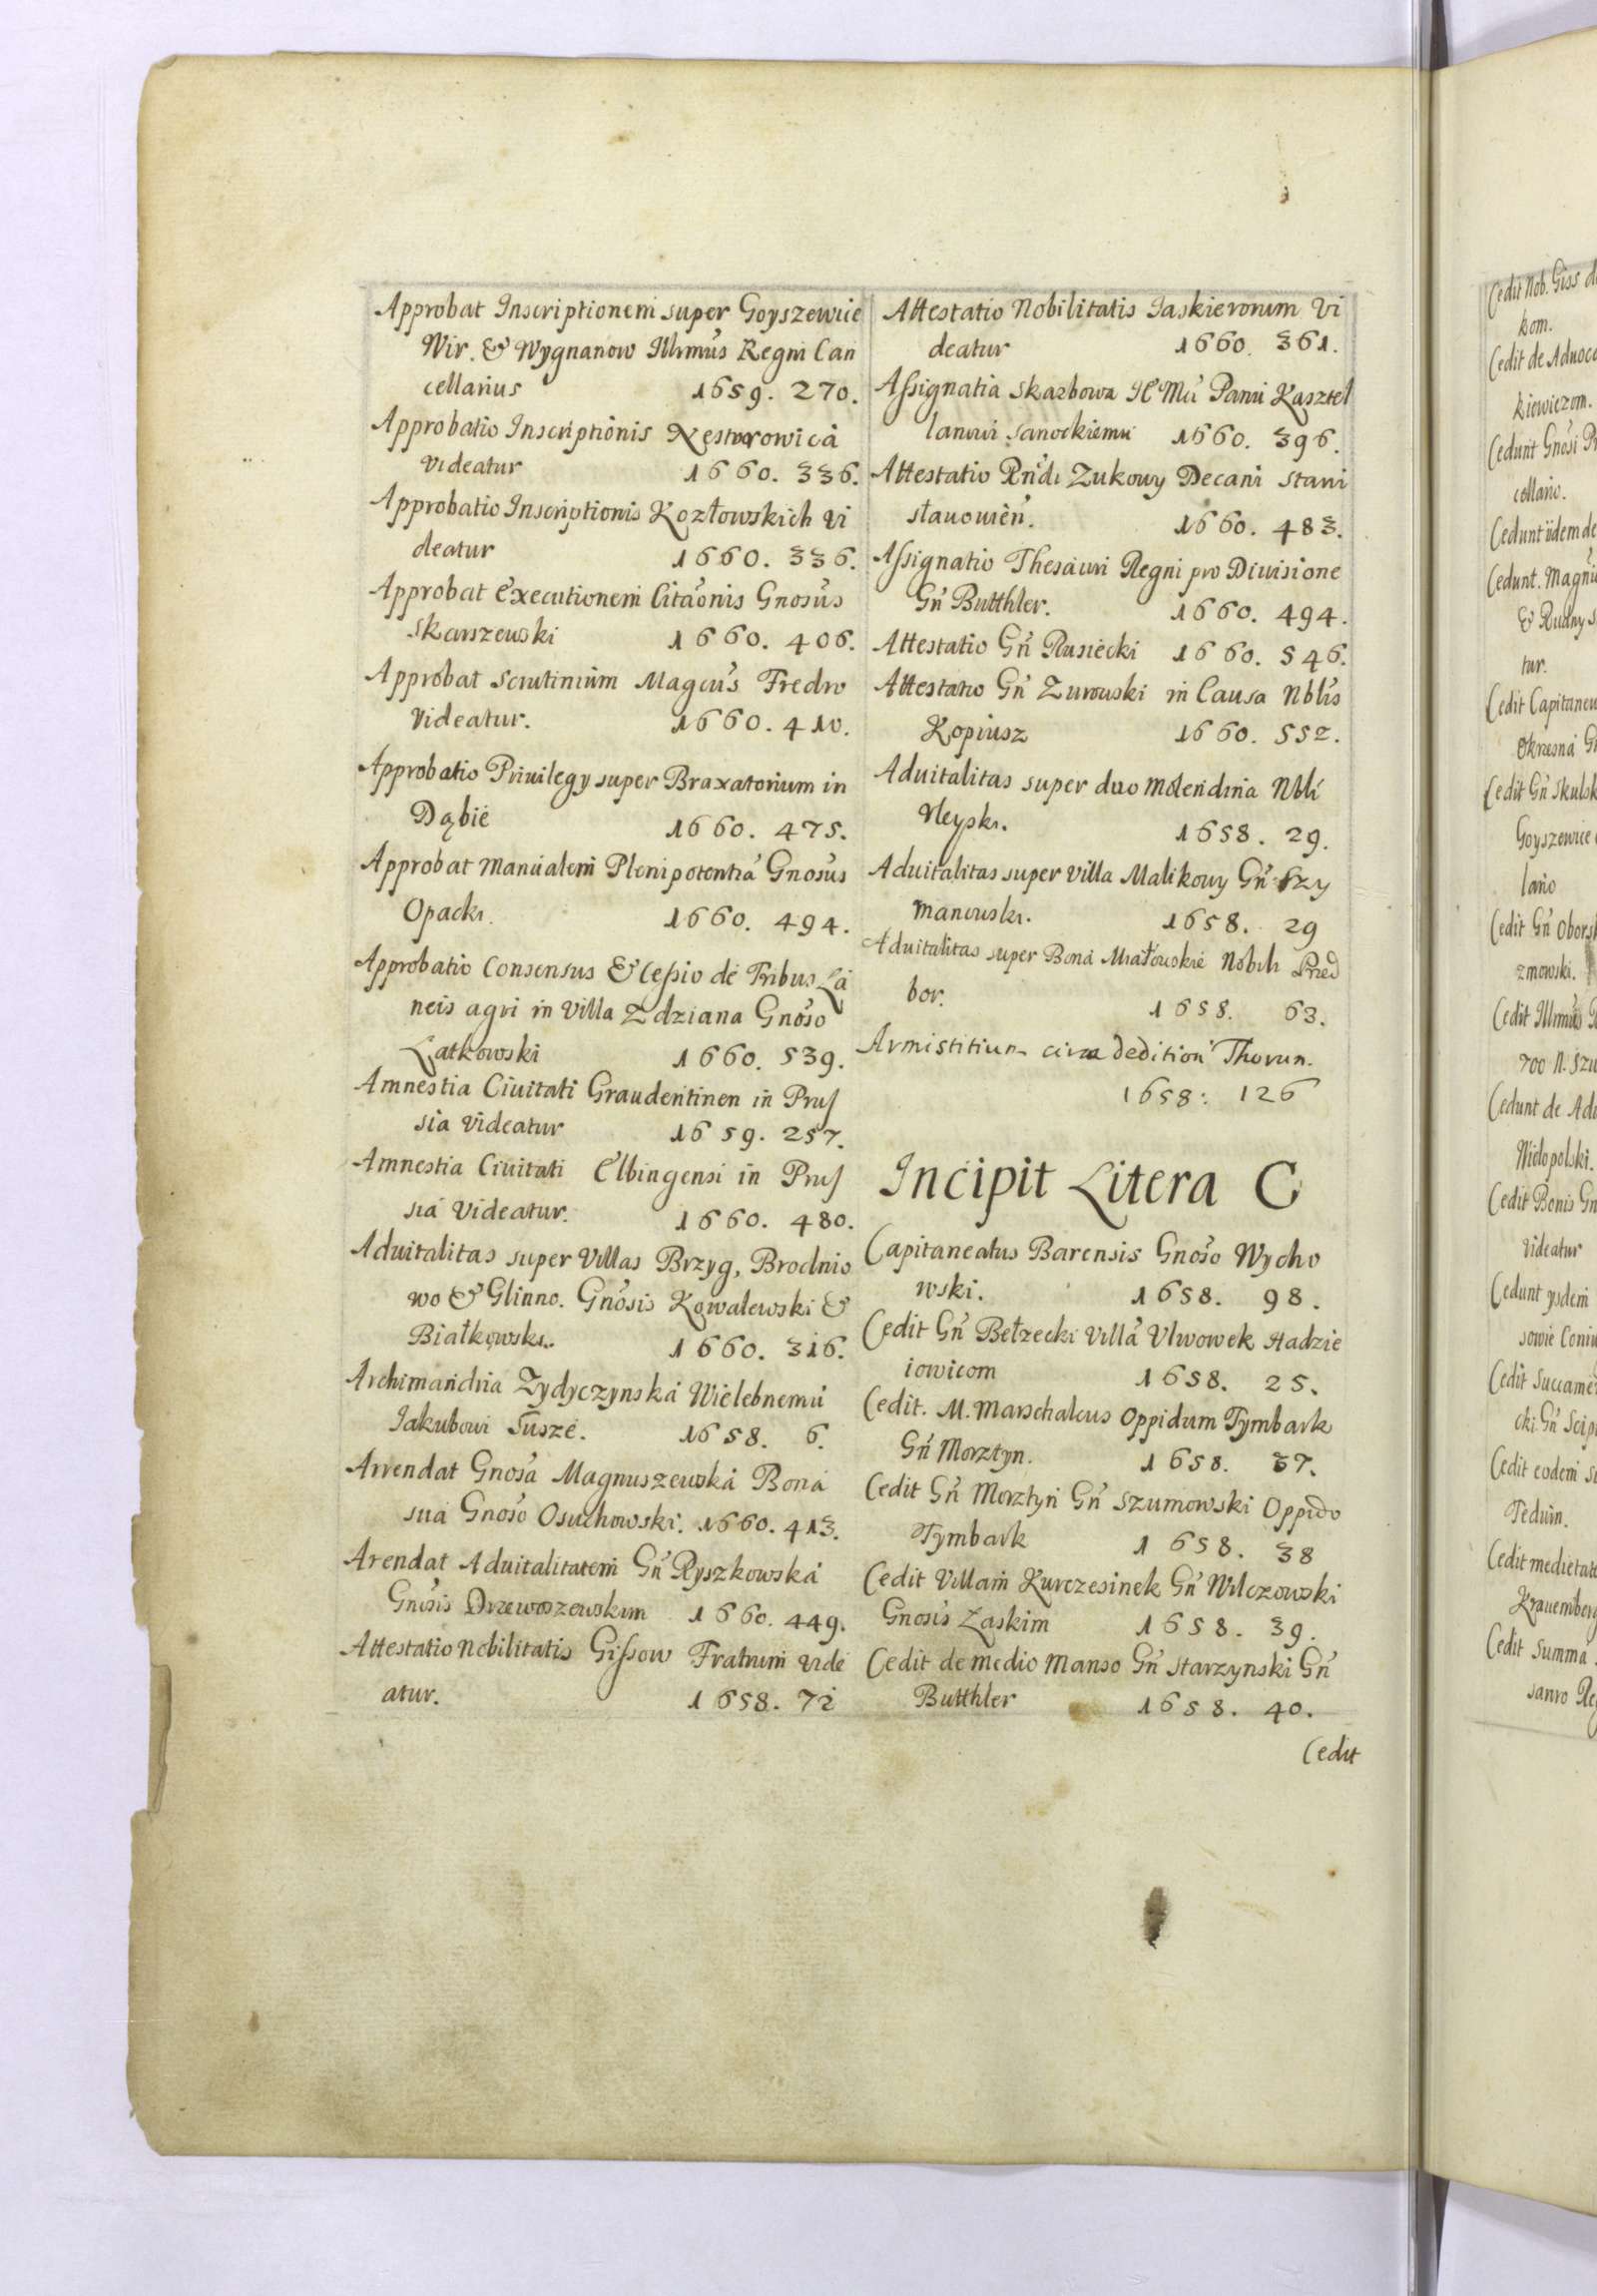 Approbat Inscriptionem super Goyszewice
Wir. & Wygnanow Illrmus Regni Can
cellarius 1659. 270.
Approbatio Inscriptionis Nestorowicá
videatur 1660. 336.
Approbatio Inscriptionis Kozłowskich vi
deatur 1660. 336.
Approbat Executionem Citãonis Gnosus
Skarszewski 1660. 406.
Approbat Scrutinium Magcus Fredro
Videatur. 1660. 410.
Approbatio Priuilegy super Braxatorium in
Dąbie 1660. 475.
Approbat Manualem Plenipotentiá Gnosus
Opacki. 1660. 494.
Approbatio Consensus & Cessio de Tribus Lá
neis agri in Villa Zdziana Gnoso
Latkowski 1660. 539.
Amnestia Ciuitati Graudentinen in Prus
sia Videatur 1659. 257.
Amnestia Ciuitati Elbingensi in Prus
sia Videatur. 1660. 480.
Aduitalitas super Villas Brzyg, Brodnio
wo & Glinno. Gnosis Kowalewski &
Białkowski. 1660. 316.
Archimandria Zydyczynská Wielebnemu
Jakubowi Susze. 1658. 6.
Arrendat Gnosa Magnuszewská Bona
sua Gnoso Osuchowski. 1660. 413.
Arendat Aduitalitatem Gñ Ryszkowská
Gnosis Drzewoszewskim 1660. 449.
Attestatio Nobilitatis Gissow Fratrum vide
atur. 1658. 72
Attestatio Nobilitatis Iaskierorum Vi
deatur 1660. 361.
Assignatia Skarbowa Panu Kasztel
lanowi Sanockiemu 1660. 396.
Attestatio Rñdi Zukowy Decani Stani
sławowień. 1660. 483.
Assignatio Thesauri Regni pro Diuisione
Gñ Butthler. 1660. 494.
Attestatio Gñ Rusiecki 1660. 546.
Attestatio Gñ Zurowski in Causa Nblis
Kopiusz 1660. 552.
Aduitalitas super duo Molendina Nbli
1658. 29.
Aduitalitas super Villa Malikowy Gñ Szy
manowski. 1658. 29
Aduitalitas super Bona Miałowskie Nobili Pried
bor. 1658. 63.
Armistitium circa dedition Thorun.
1658: 126
Incipit Litera C
Capitaneatus Barensis Gnoso Wycho
wski. 1658. 98.
Cedit Gñ Bełzecki Villá Vlwowek Hadzie
iowicom 1658. 25.
Cedit. M. Marschalcus Oppidum Tymbark
Gñ Morztyn. 1658. 37.
Cedit Gñ Morztyn Gñ Szumowski Oppido
Tymbark 1658. 38
Cedit Villam Kurczesinek Gñ Wilczowski
Gnosis Laskim 1658. 39.
Cedit de medio Manso Gñ Starzynski Gñ
Butthler 1658. 40.
Cedit
Cedit Nob. Giss
kom.
Cedit de Aduoca
kiewiczom.
Cedunt Gnosi
cellario.
Cedunt iidem de
Cedunt. Magni
& Rudny
tur.
Cedit Capitaneu
Okrzesná
Cedit Gñ Skulsk
Goyszewice
lano
Cedit Gñ Obors
zmowski.
Cedit Illrmus
700 n. Szu
Cedunt de Adu
Wielopolski.
Cedit Bonis Gn
Videatur
Cedunt ysdem
sowie Coniu
Cedit Succame
cki Gñ Scip
Cedit eodem
Teduin.
Cedit medietate
Krauemberg
Cedit Summá
sauro Reg